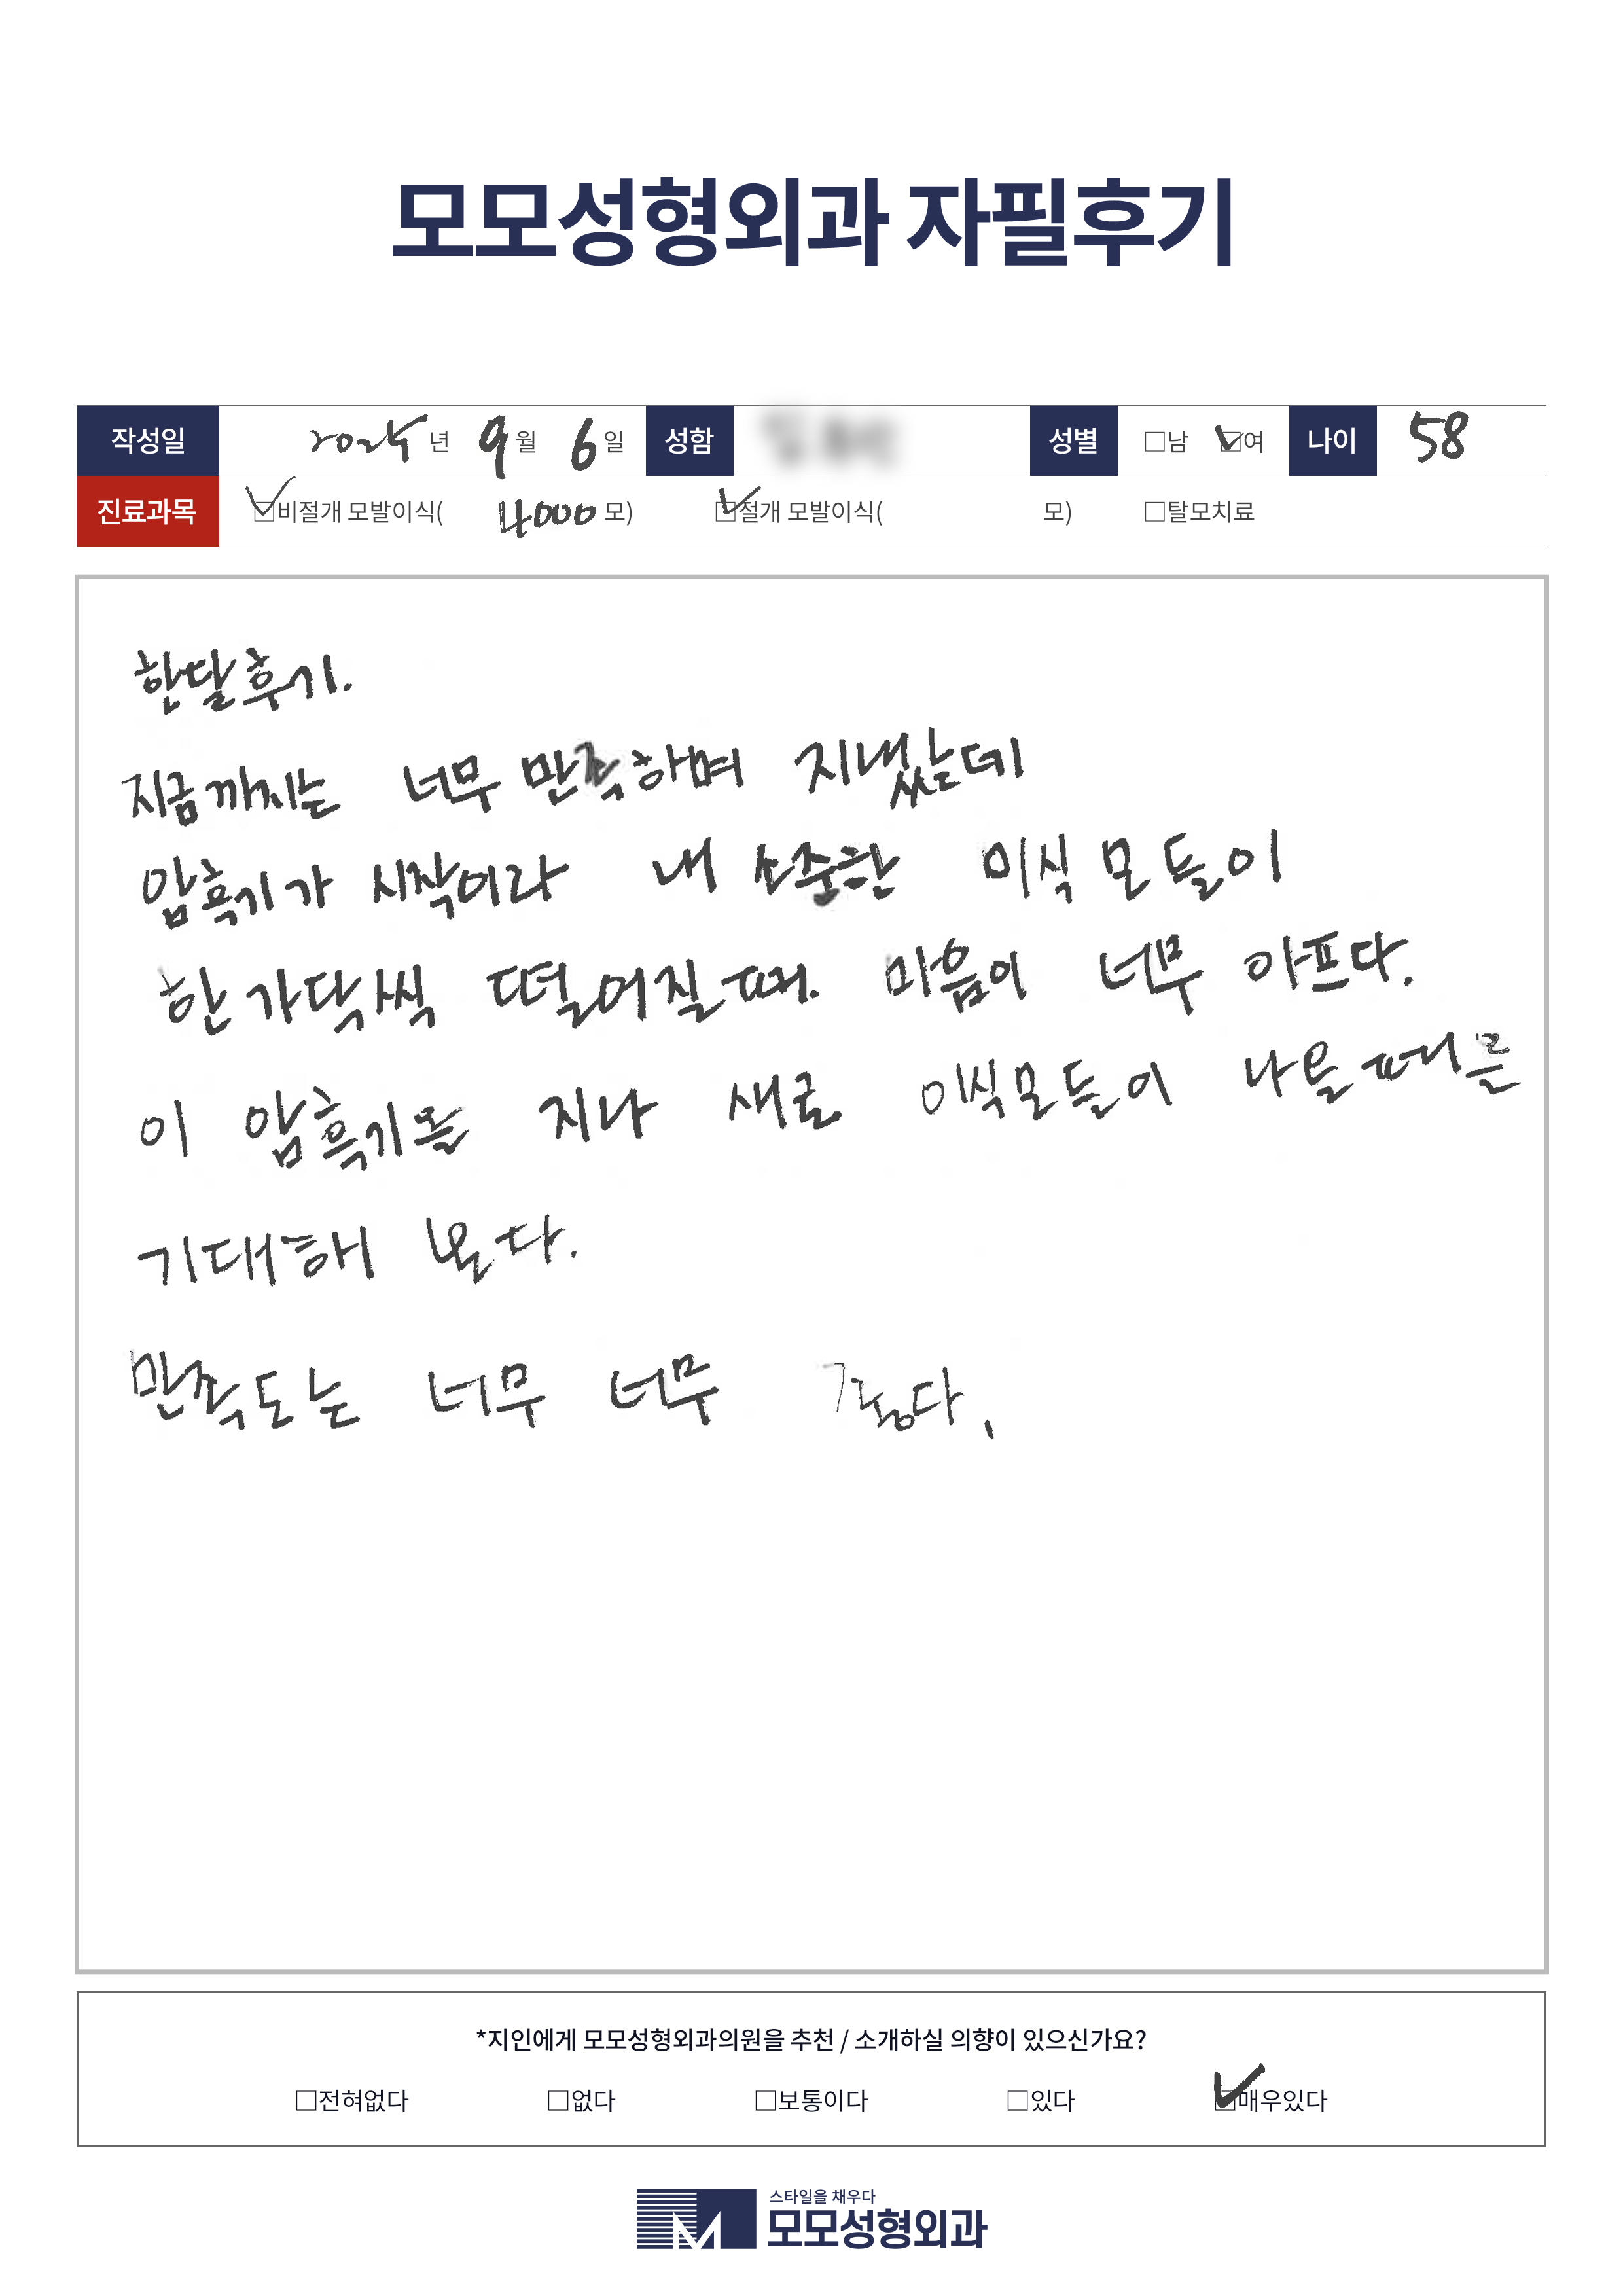 모모성형외과 자필후기
작성일 2025년 9월 6일 성함 성별 □남 ☑여 나이 58
진료과목 ☑비절개 모발이식( 4000 모) ☑절개 모발이식( 모) □탈모치료
한달후기.
지금까지는 너무 만족하며 지냈는데
암흑기가 시작이라 내 소중한 이식모들이
한가닥씩 떨어질때. 마음이 너무 아프다.
이 암흑기를 지나 새로 이식모들이 나올때를
기대해 본다.
만족도는 너무 너무 좋다.
*지인에게 모모성형외과의원을 추천 / 소개하실 의향이 있으신가요?
□전혀없다 □없다 □보통이다 □있다 ☑매우있다
스타일을 채우다
모모성형외과